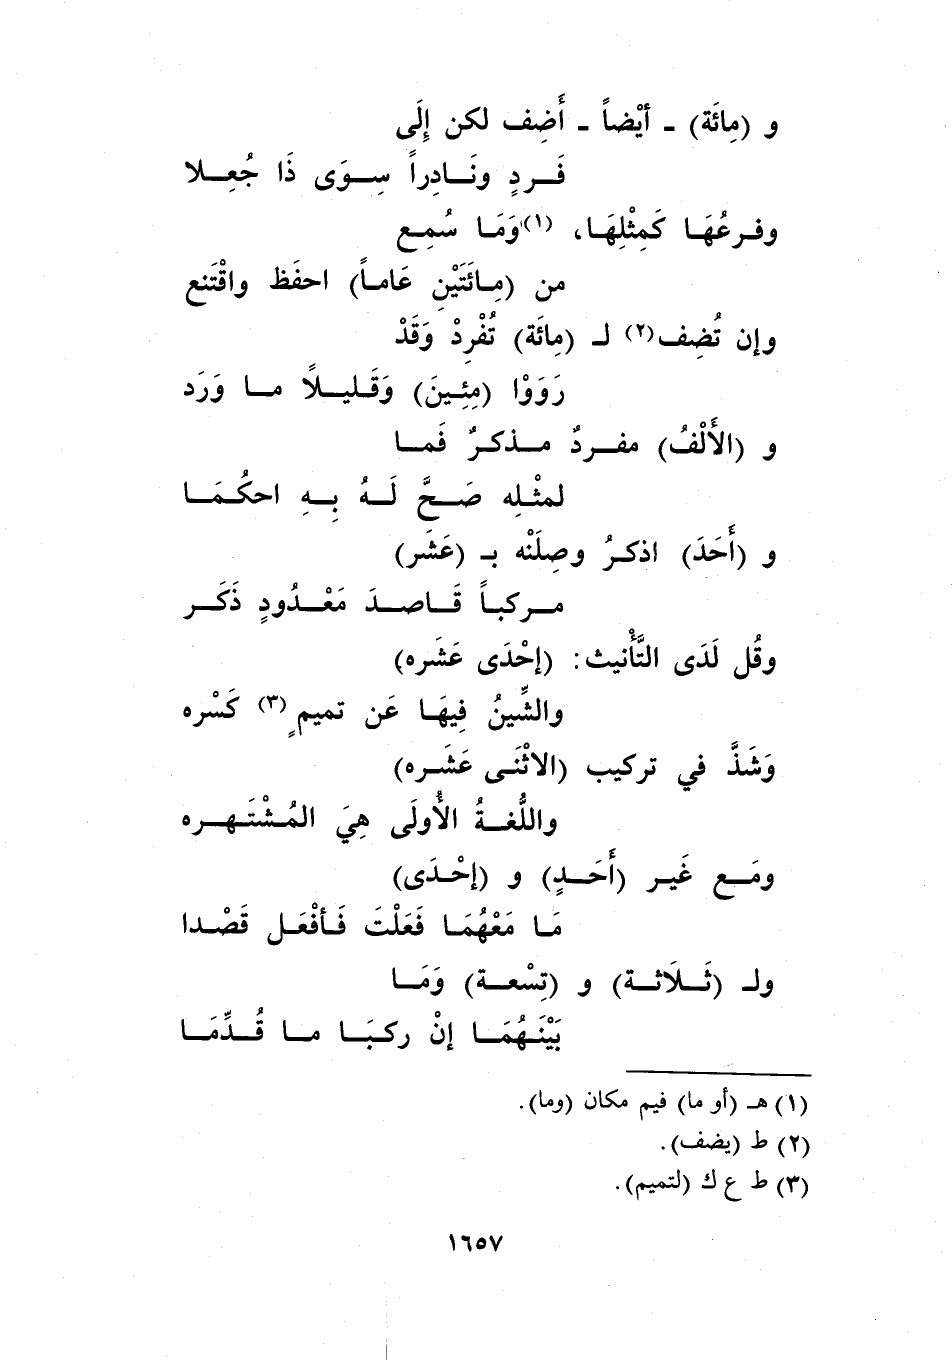 و (مِائَة) - أيْضاً - أَضِف لكن إِلَى
فَــردٍ ونَــادِراً سِــوَى ذَا جُعِــلا
وفـرعُهَـا كَمِثْلِهَـا، (١) وَمَـا سُمِـع
من (مِـائَتَيْنِ عَامـاً) احفَظ واقْتَنع
وإن تُضِف(٢) لـ (مِائَة) تُفْرِدْ وَقَدْ
رَوَوْا (مِئِـينَ) وَقَـلـيـلاً مـا وَرَد
و (الأَلْفُ) مفـردٌ مـذكـرٌ فَمـا
لمثْـلِه صَــحَّ لَــهُ بِــهِ احكُـمَـا
و (أَحَدَ) اذكـرُ وصِلَنْه بـ (عَشَر)
مـركبـاً قَـاصـدَ مَعْـدُودٍ ذَكَـر
وقُل لَدَى التَّأْنيث: (إحْدَى عَشَره)
والشِّينُ فِيهَـا عَن تميمٍ(٣) كَسْره
وَشَذَّ في تركيب (الاثْنَـى عَشَـره)
واللُّغـةُ الأُولَى هِيَ المُـشْتَـهـره
ومَـع غَيـر (أَحَـدٍ) و (إحْـدَى)
مَـا مَعْهُمَـا فَعَلْتَ فَـأفْعَـل قَصْـدا
ولـ (ثَـلَاثـة) و (تِسْعـة) وَمَـا
بَيْنَـهُمَـا إنْ ركـبَـا مـا قُـدِّمَـا
(١) هـ (أو ما) فيم مكان (وما).
(٢) ط (يضف).
(٣) ط ع ك (لتميم).
١٦٥٧